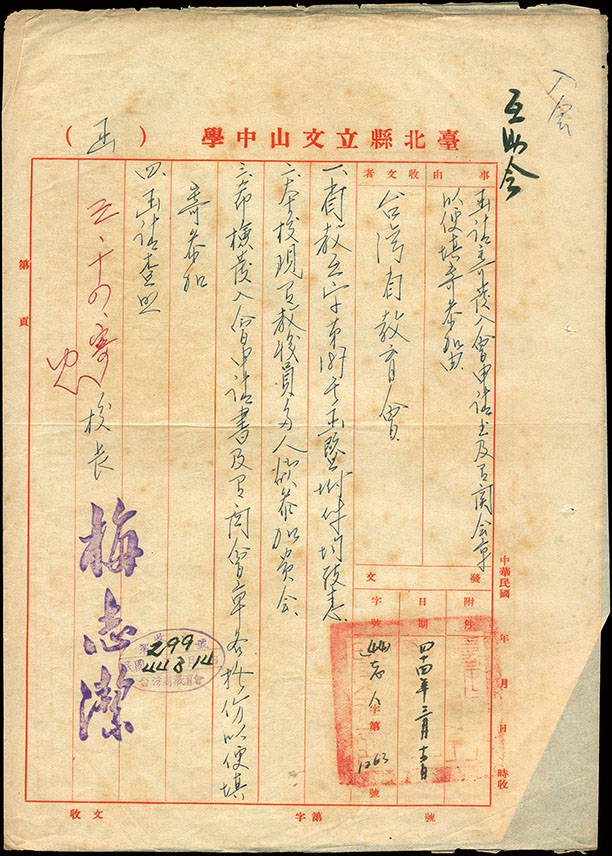 入会
互助会
臺北縣立文山中學
（函）
事由
函請寄發入會申請书及有関会章
以便填寄參加由
收文者
台湾省教育會
一、省教互字第 号函暨附件均敬悉
二、本校現有教職員多人欲參加貴会
三、希檢發入會申請書及有関會章各拾份以便填
寄參加
四、函請查照
校長
梅志潔
三、十四、寄
發文
附件
日期
四十四年三月十 日
字號
人字第1263號
中華民國 年 月 日 時收
299
44 3 14
台灣省教育會
第 頁
收文 字第